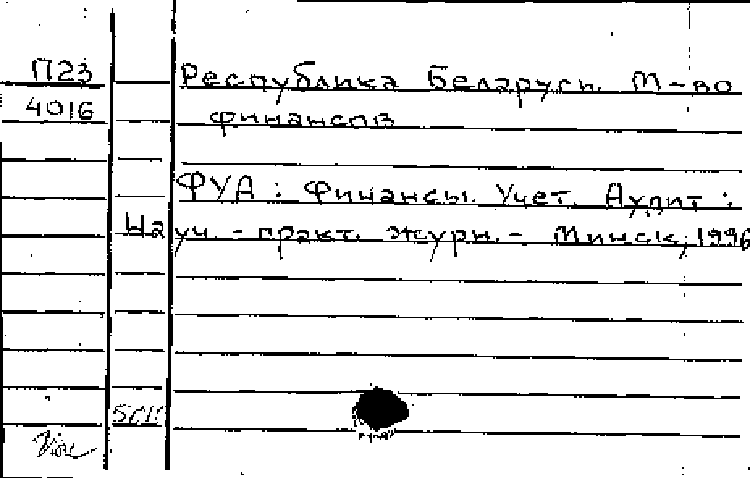 П23
4016
Республика Беларусь. М-во
финансов
ФУА : Финансы. Учет. Аудит :
Науч. - практ. журн. - Минск, 1996